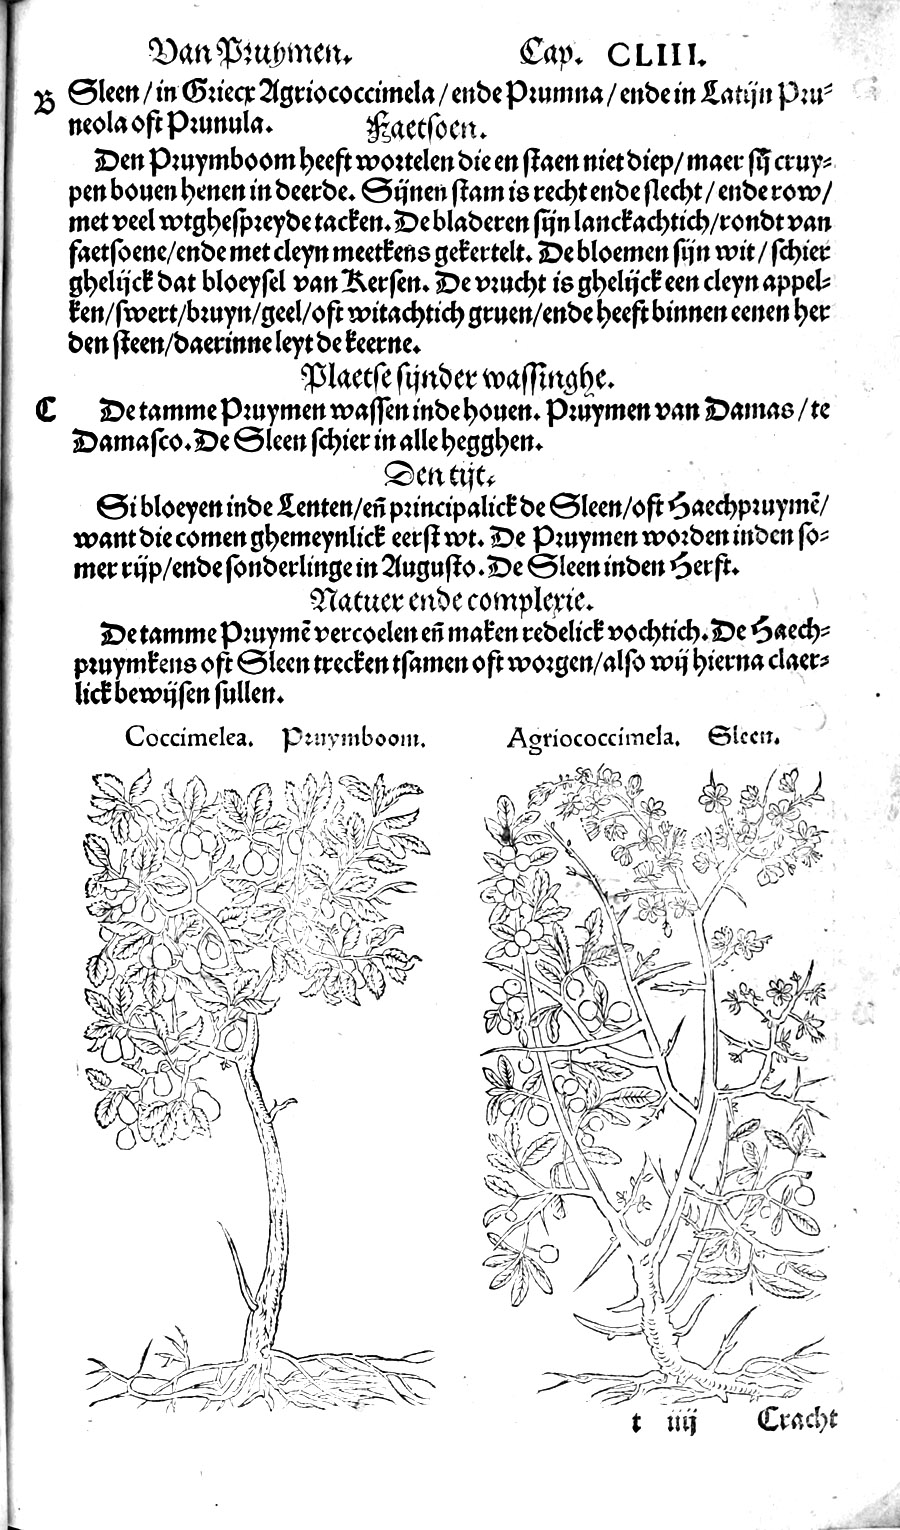 Van Pruymen. Cap. CLIII.
B Sleen / in Griecx Agriococcimela / ende Prumna / ende in Latijn Pru⸗
neola oft Prunula. Faetsoen.
Den Pruymboom heeft wortelen die en staen niet diep / maer sij cruy⸗
pen bouen henen in deerde. Sijnen stam is recht ende slecht / ende row /
met veel wtghespreyde tacken. De bladeren sijn lanckachtich / rondt van
faetsoene / ende met cleyn meetkens gekertelt. De bloemen sijn wit / schier
ghelijck dat bloeysel van Kersen. De vrucht is ghelijck een cleyn appel⸗
ken / swert / bruyn / geel / oft witachtich gruen / ende heeft binnen eenen her
den steen / daerinne leyt de keerne.
Plaetse sijnder wassinghe.
C De tamme Pruymen wassen inde houen. Pruymen van Damas / te
Damasco. De Sleen schier in alle hegghen.
Den tijt.
Si bloeyen inde Lenten / eñ principalick de Sleen / oft Haechpruymẽ /
want die comen ghemeynlick eerst wt. De Pruymen worden inden so⸗
mer rijp / ende sonderlinge in Augusto. De Sleen inden Herft.
Natuer ende complexie.
De tamme Pruymẽ vercoelen eñ maken redelick vochtich. De Haech⸗
pruymkens oft Sleen trecken tsamen oft worgen / also wij hierna claer⸗
lick bewijsen sullen.
Coccimelea. Pruymboom. Agriococcimela. Sleen.
t iiij Cracht